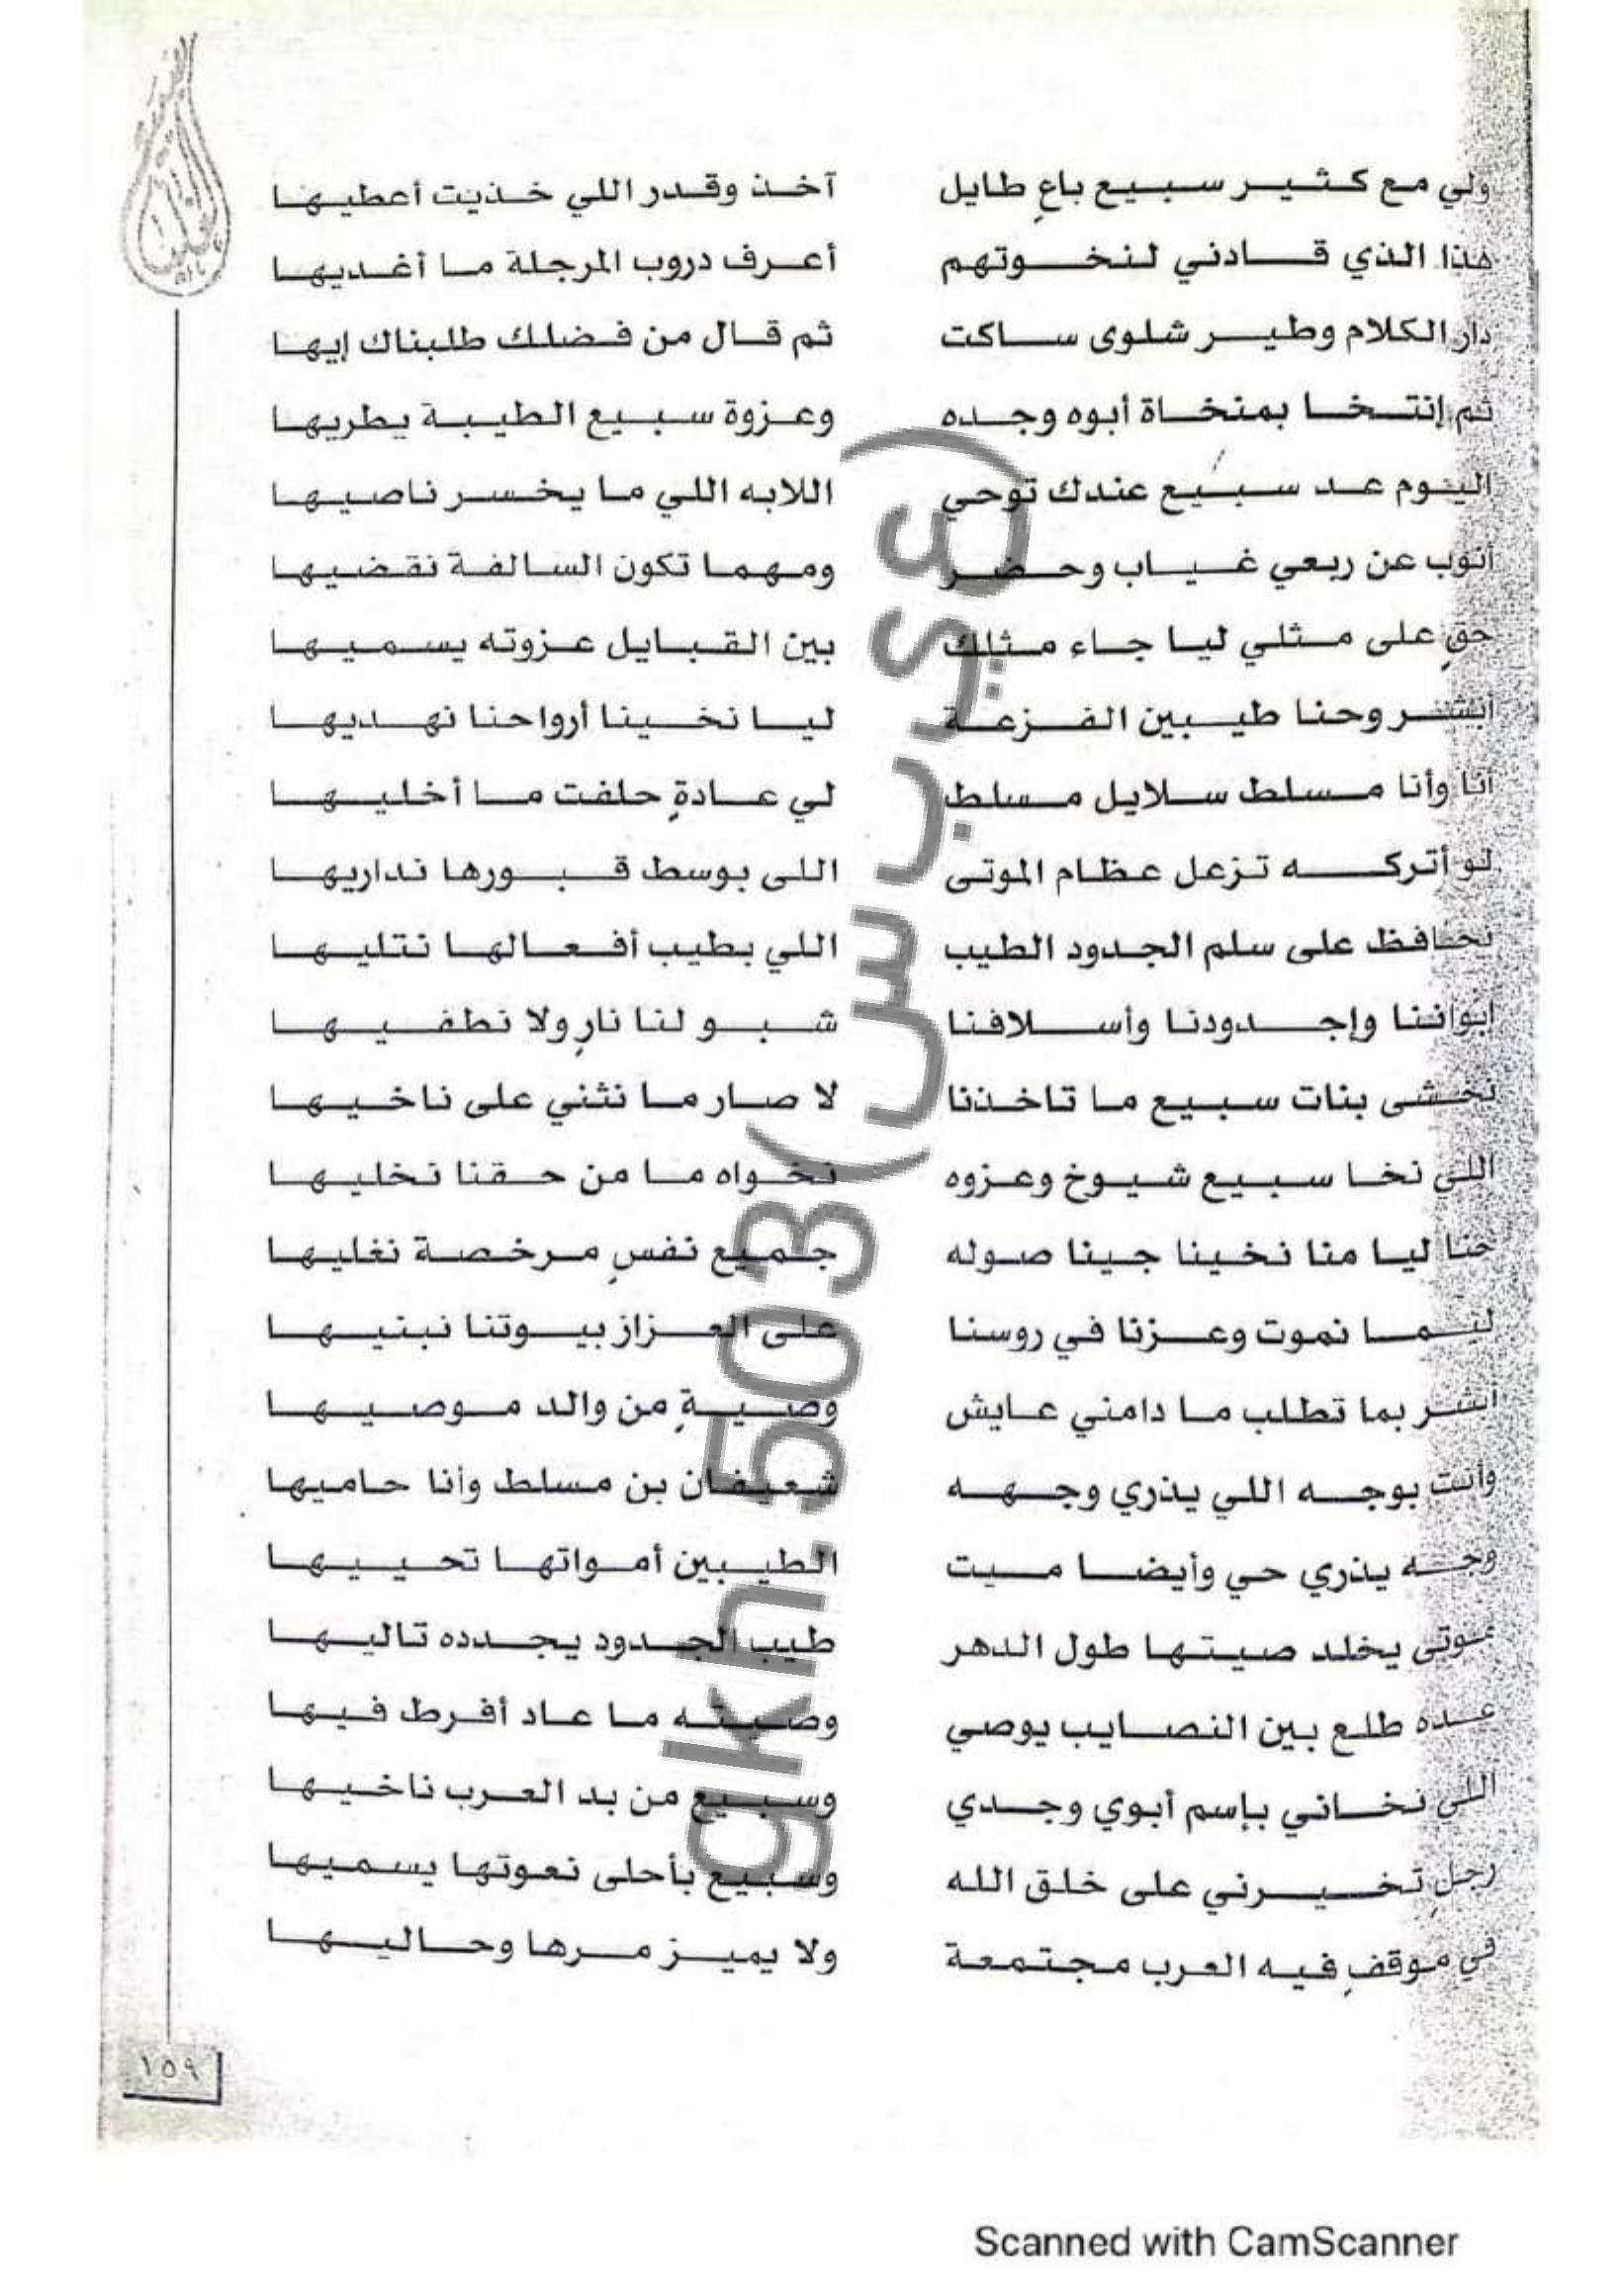 ولي مع كثير سبيع باعٍ طايل آخذ وقدر اللي خذيت أعطيها
هذا الذي قادني لنخوتهم أعرف دروب المرجلة ما أغديها
دار الكلام وطير شلوى ساكت ثم قال من فضلك طلبناك إيها
ثم إنتخا بمنخاة أبوه وجده وعزوة سبيع الطيبة يطريها
اليوم عد سبيع عندك توحي اللابه اللي ما يخسر ناصيها
أنوب عن ربعي غياب وحضر ومهما تكون السالفة نقضيها
حقٍ على مثلي ليا جاء مثلك بين القبايل عزوته يسميها
أبشر وحنا طيبين الفزعة ليا نخينا أرواحنا نهديها
أنا وأنا مسلط سلايل مسلط لي عادةٍ حلفت ما أخليها
لو أتركه تزعل عظام الموتى اللى بوسط قبورها نداريها
نحافظ على سلم الجدود الطيب اللي بطيب أفعالها نتليها
ابواننا وإجدودنا وأسلافنا شبو لنا نارٍ ولا نطفيها
نخشى بنات سبيع ما تاخذنا لا صار ما نثني على ناخيها
اللي نخا سبيع شيوخ وعزوه نخواه ما من حقنا نخليها
حنا ليا منا نخينا جينا صوله جميع نفسٍ مرخصة نغليها
ليما نموت وعزنا في روسنا على العزاز بيوتنا نبنيها
أبشر بما تطلب ما دامني عايش وصيةٍ من والد موصيها
وأنت بوجه اللي يذري وجهه شعيفان بن مسلط وأنا حاميها
وجه يذري حي وأيضا ميت الطيبين أمواتها تحييها
موتى يخلد صيتها طول الدهر طيب الجدود يجدده تاليها
عده طلع بين النصايب يوصي وصيته ما عاد أفرط فيها
اللي نخاني بإسم أبوي وجدي وسبيع من بد العرب ناخيها
رجلٍ تخيرني على خلق الله وسبيع بأحلى نعوتها يسميها
في موقفٍ فيه العرب مجتمعة ولا يميز مرها وحاليها
١٥٩
glkh.503
Scanned with CamScanner